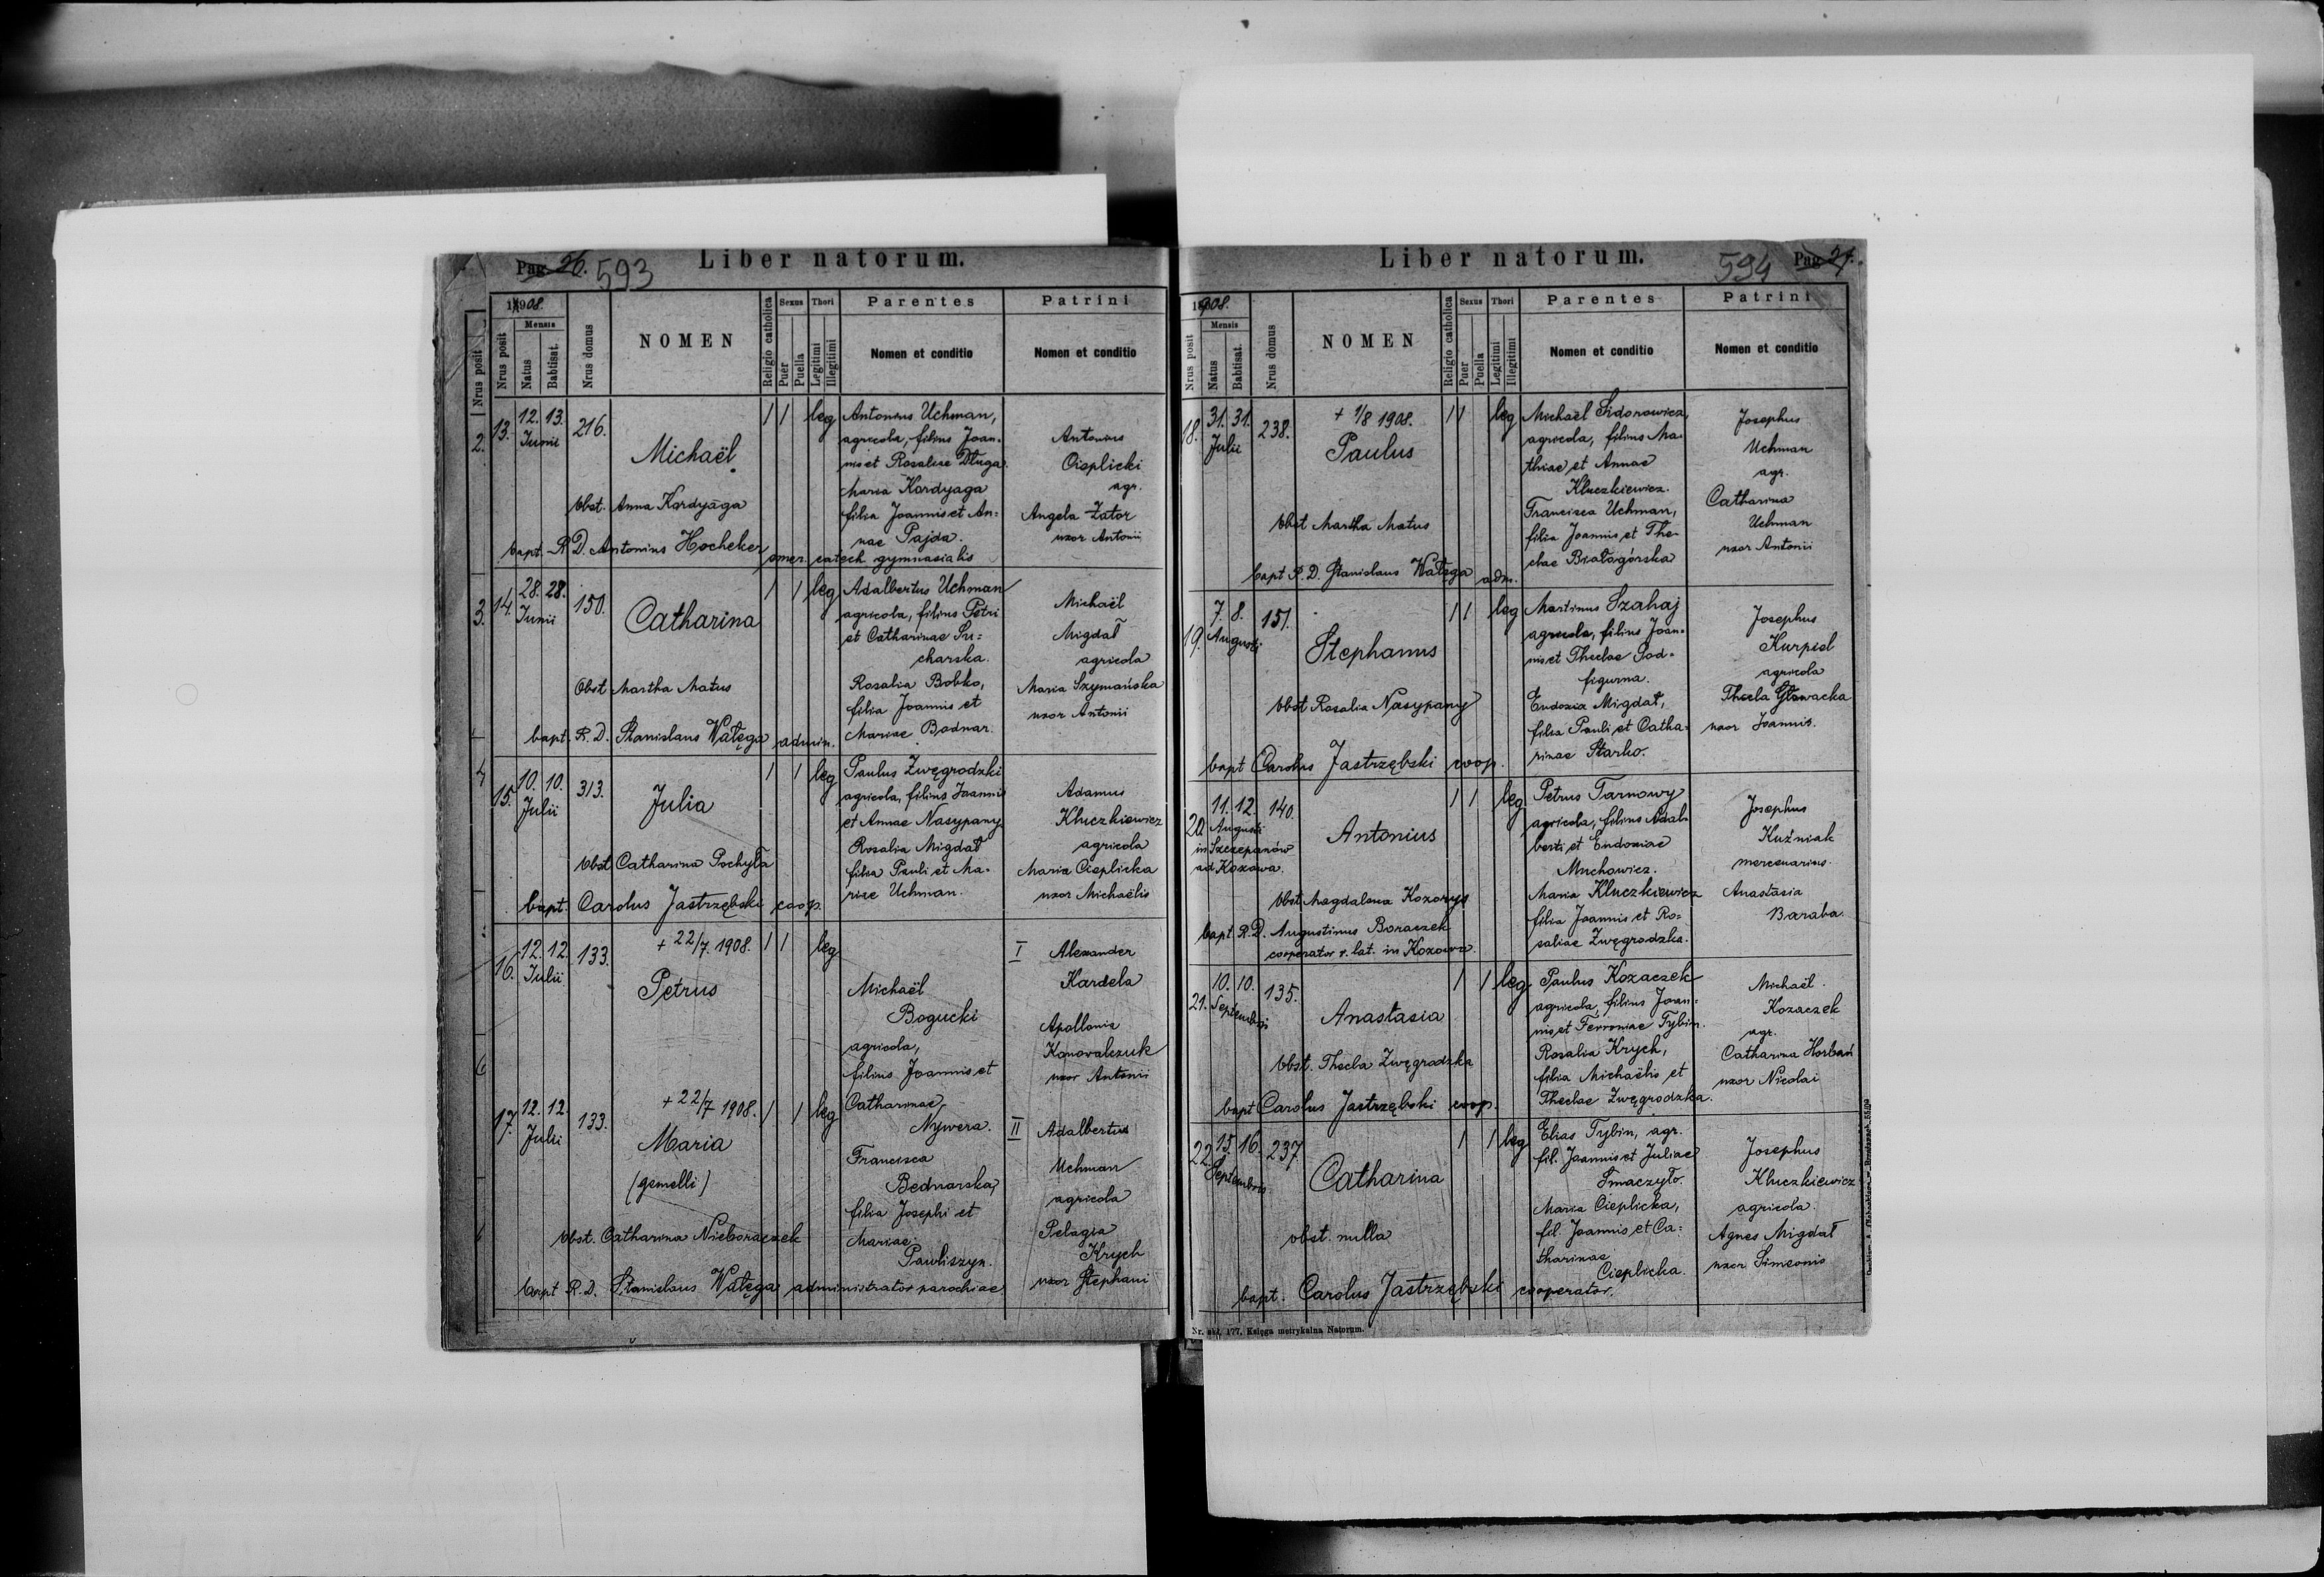 Pag. 26. 593
Liber natorum.
1908.
Nrus posit
Nrus posit
Mensis
Natus
Babtisat.
Nrus domus
NOMEN
Religio catholica
Sexus
Puer
Puella
Thori
Legitimi
Illegitimi
Parentes
Nomen et conditio
Patrini
Nomen et conditio
2. 13. 12. 13. Junii 216.
Michaël
1 1 leg
Antonius Uchman,
agricola, filius Joan-
nis et Rosaliae Długa.
Maria Kordyaga
filia Joannis et An=
nae Pajda.
Antonius
Cieplicki
agr.
Angela Zator
uxor Antonii
Obst. Anna Kordyaga
bapt. R. D. Antonius Hocheker emer. catech. gymnasialis
3. 14. 28. 28. Junii 150.
Catharina
1 1 leg
Adalbertus Uchman
agricola, filius Petri
et Catharinae Su=
charska.
Rosalia Bobko,
filia Joannis et
Mariae Bodnar.
Michaël
Migdał
agricola
Maria Szymańska
uxor Antonii
Obst Martha Matus
bapt. R. D. Stanislaus Wałęga admin.
4 15. 10. 10. Julii 313.
Julia
1 1 leg
Paulus Zwęgrodzki
agricola, filius Joannis
et Annae Nasypany.
Rosalia Migdał
filia Pauli et Ma-
riae Uchman.
Adamus
Kluczkiewicz
agricola
Maria Cieplicka
uxor Michaëlis
Obst Catharina Pochyła
bapt. Carolus Jastrzębski coop.
16. 12. 12. Julii 133.
+ 22/7. 1908.
Petrus
1 1 leg
Michaël
Bogucki
agricola,
filius Joannis et
Catharinae
Nywera.
Francisca
Bednarska,
filia Josephi et
Mariae
Pawliszyn.
I Alexander
Kardela
Apollonia
Konowalczuk
uxor Antonii
17. 12. 12. Julii 133.
+ 22/7 1908.
Maria
(gemelli)
1 1 leg
II Adalbertus
Uchman
agricola
Pelagia
Krych
uxor Stephani
Obst. Catharina Nieboraczek
bapt R. D. Stanislaus Wałęga administrator parochiae
Liber natorum.
594 Pag. 27.
1908.
Nrus posit
Mensis
Natus
Babtisat.
Nrus domus
NOMEN
Religio catholica
Sexus
Puer
Puella
Thori
Legitimi
Illegitimi
Parentes
Nomen et conditio
Patrini
Nomen et conditio
18. 31. 31. Julii 238.
+ 1/8 1908.
Paulus
1 1 leg
Michaël Sidorowicz,
agricola, filius Ma-
thiae et Annae
Kluczkiewicz.
Francisca Uchman,
filia Joannis et The-
clae Białogórska
Josephus
Uchman
agr.
Catharina
Uchman
uxor Antonii
Obst Martha Matus
bapt R. D. Stanislaus Wałęga adm.
19. 7. 8. Augusti 151.
Stephanus
1 1 leg
Martinus Szahaj
agricola, filius Joan-
nis et Theclae Pod-
figurna.
Eudoxia Migdał,
filia Pauli et Catha-
rinae Starko.
Josephus
Kurpiel
agricola
Thecla Głowacka
uxor Joannis.
Obst Rosalia Nasypany
bapt Carolus Jastrzębski coop.
20. 11. 12. Augusti 140.
in Szczepanów
ad Kozowa.
Antonius
1 1 leg
Petrus Tarnowy
agricola, filius Adal-
berti et Eudoxiae
Muchowicz.
Maria Kluczkiewicz
filia Joannis et Ro=
saliae Zwęgrodzka.
Josephus
Kuźniak
mercenarius.
Anastasia
Baraba.
Obst Magdalena Kozorys
bapt R. D. Augustinus Boraczek
cooperator r. lat. in Kozowa.
21. 10. 10. Septembris 135.
Anastasia
1 1 leg
Paulus Kozaczek
agricola, filius Joan=
nis et Ferroniae Tybin.
Rosalia Krych,
filia Michaëlis et
Theclae Zwęgrodzka.
Michaël
Kozaczek
agr.
Catharina Horbań
uxor Nicolai
Obst. Thecla Zwęgrodzka
bapt Carolus Jastrzębski coop.
22. 15. 16. Septembris 237.
Catharina
1 1 leg
Elias Tybin, agr.
fil. Joannis et Juliae
Tmaczyło.
Maria Cieplicka,
fil Joannis et Ca=
tharinae
Cieplicka.
Josephus
Kluczkiewicz
agricola.
Agnes Migdał
uxor Simeonis
obst. nulla
bapt. Carolus Jastrzębski cooperator.
Nr. skł. 177. Księga metrykalna Natorum.